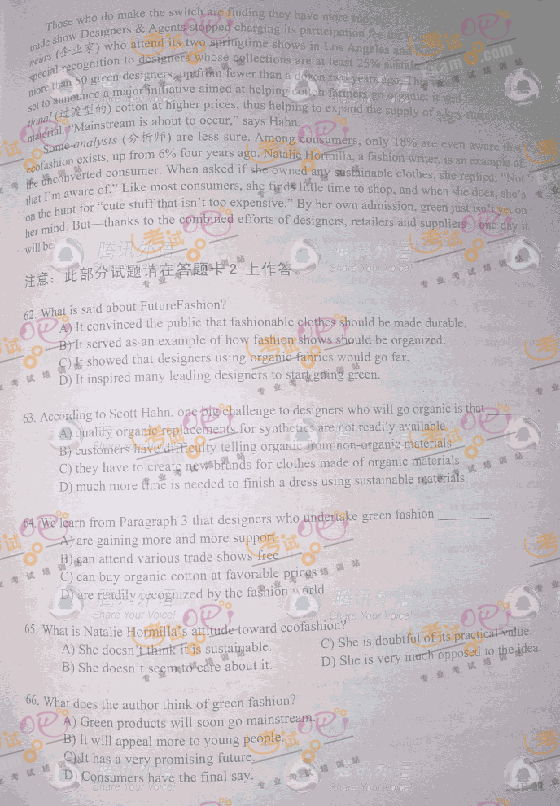 Those who do make the switch are finding they have more
made show Designers & Agents stopped charging its participation fee
neurs (企业家) who attend its two springtime shows in Los Angeles and
special recognition to designers whose collections are at least 25% sustainable
more than 50 green designers, up from fewer than a dozen two years ago.
set to announce a major initiative aimed at helping cotton farmers go organic
tional (过渡型的) cotton at higher prices, thus helping to expand the supply of
material. "Mainstream is about to occur," says Hahn.
Some analysts (分析师) are less sure. Among consumers, only 18% are even aware that
ecofashion exists, up from 6% four years ago. Natalie Hormilla, a fashion writer, is an example of
the unconverted consumer. When asked if she owned any sustainable clothes, she replied: "Not
that I'm aware of." Like most consumers, she finds little time to shop, and when she does, she's
on the hunt for "cute stuff that isn't too expensive." By her own admission, green just isn't yet on
her mind. But—thanks to the combined efforts of designers, retailers and suppliers—one day it
will be.
注意：此部分试题请在答题卡2上作答。
62. What is said about FutureFashion?
A) It convinced the public that fashionable clothes should be made durable.
B) It served as an example of how fashion shows should be organized.
C) It showed that designers using organic fabrics would go far.
D) It inspired many leading designers to start going green.
63. According to Scott Hahn, one big challenge to designers who will go organic is that
A) quality organic replacements for synthetics are not readily available
B) customers have difficulty telling organic from non-organic materials
C) they have to create new brands for clothes made of organic materials
D) much more time is needed to finish a dress using sustainable materials
64. We learn from Paragraph 3 that designers who undertake green fashion ____
A) are gaining more and more support
B) can attend various trade shows free
C) can buy organic cotton at favorable prices
D) are readily recognized by the fashion world
65. What is Natalie Hormilla's attitude toward ecofashion?
A) She doesn't think it is sustainable. C) She is doubtful of its practical value.
B) She doesn't seem to care about it. D) She is very much opposed to the idea.
66. What does the author think of green fashion?
A) Green products will soon go mainstream.
B) It will appeal more to young people.
C) It has a very promising future.
D) Consumers have the final say.